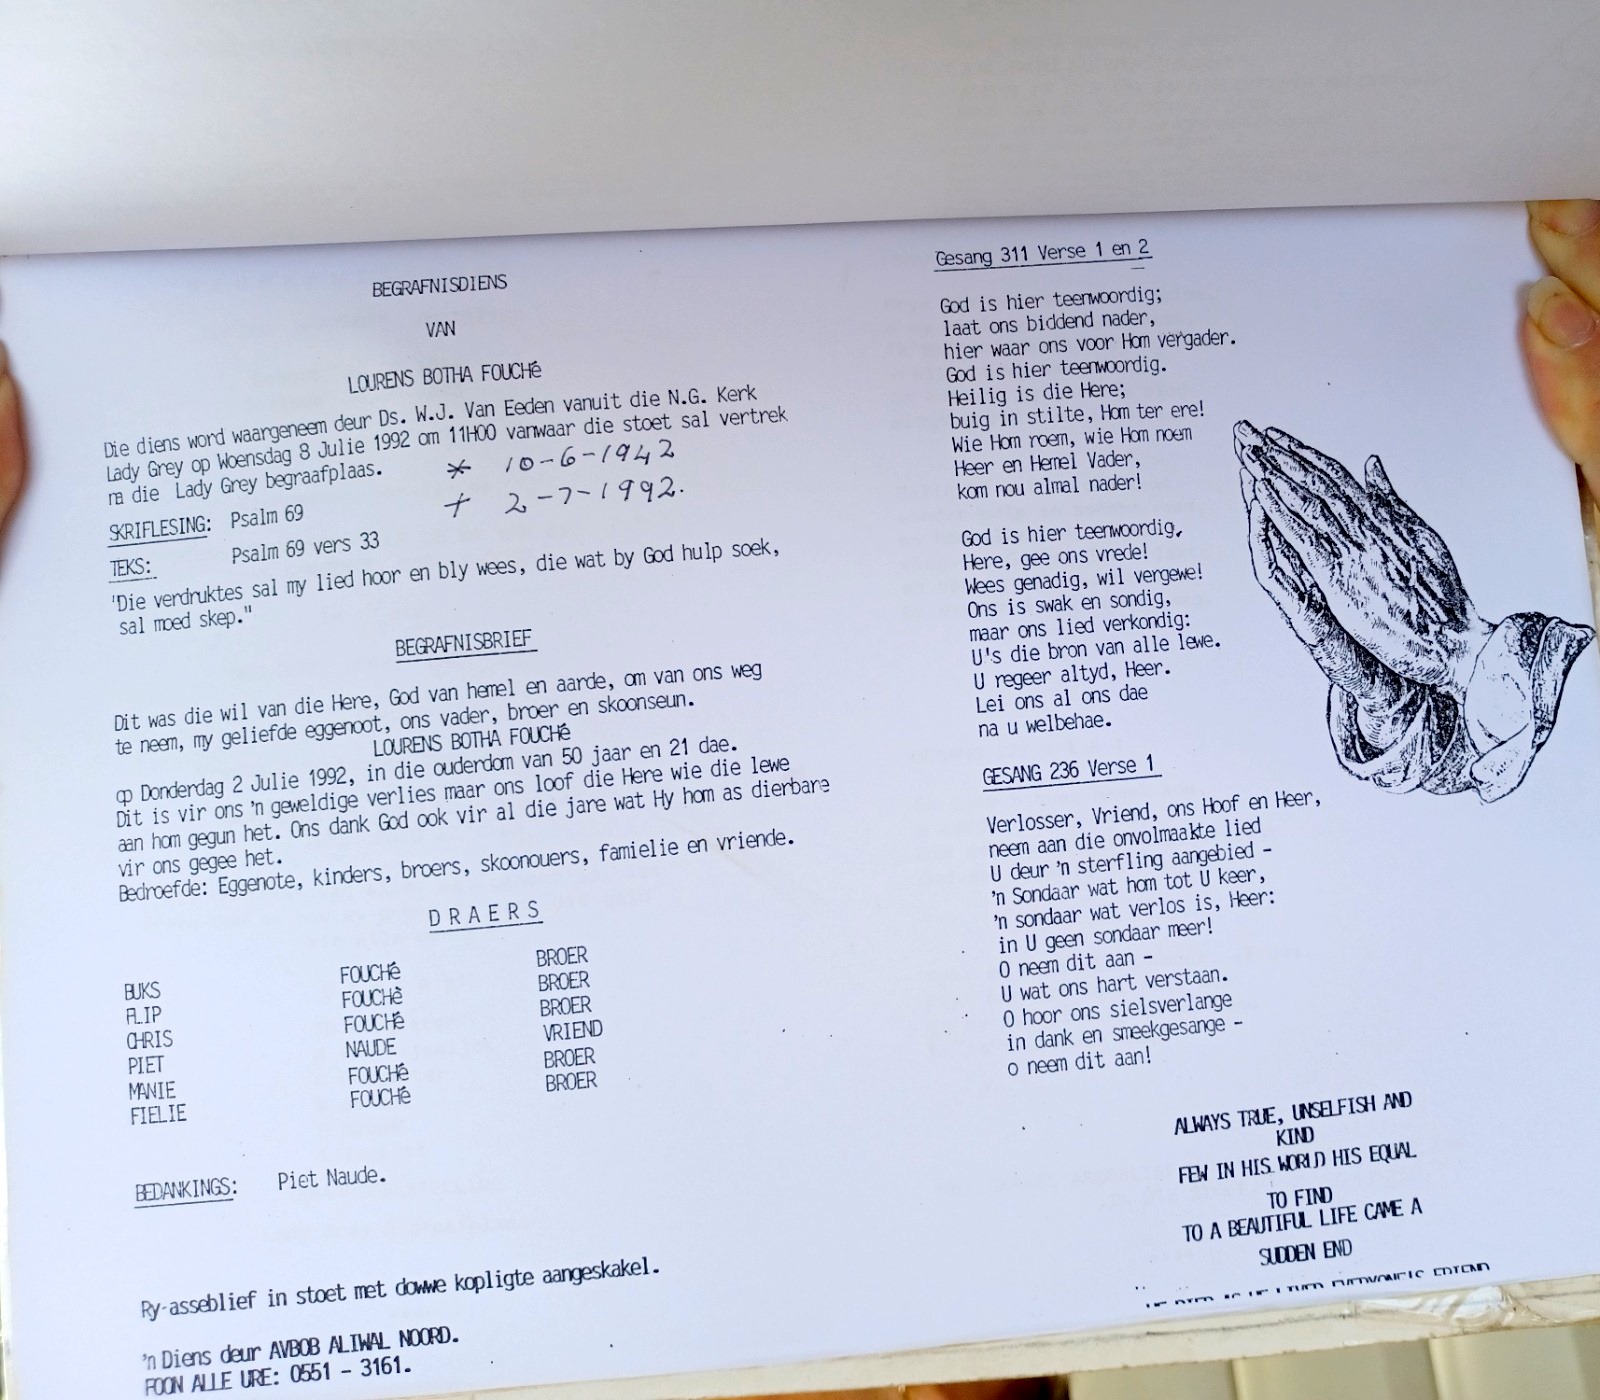 BEGRAFNISDIENS
VAN
LOURENS BOTHA FOUCHé
Die diens word waargeneem deur Ds. W.J. Van Eeden vanuit die N.G. Kerk
Lady Grey op Woensdag 8 Julie 1992 om 11H00 vanwaar die stoet sal vertrek
na die Lady Grey begraafplaas.
* 10-6-1942
+ 2-7-1992.
SKRIFLESING: Psalm 69
TEKS: Psalm 69 vers 33
'Die verdruktes sal my lied hoor en bly wees, die wat by God hulp soek,
sal moed skep."
BEGRAFNISBRIEF
Dit was die wil van die Here, God van hemel en aarde, om van ons weg
te neem, my geliefde eggenoot, ons vader, broer en skoonseun.
LOURENS BOTHA FOUCHé
op Donderdag 2 Julie 1992, in die ouderdom van 50 jaar en 21 dae.
Dit is vir ons 'n geweldige verlies maar ons loof die Here wie die lewe
aan hom gegun het. Ons dank God ook vir al die jare wat Hy hom as dierbare
vir ons gegee het.
Bedroefde: Eggenote, kinders, broers, skoonouers, famielie en vriende.
DRAERS
BUKS FOUCHé BROER
FLIP FOUCHè BROER
CHRIS FOUCHé BROER
PIET NAUDE VRIEND
MANIE FOUCHé BROER
FIELIE FOUCHé BROER
BEDANKINGS: Piet Naude.
Ry-asseblief in stoet met dowwe kopligte aangeskakel.
'n Diens deur AVBOB ALIWAL NOORD.
FOON ALLE URE: 0551 - 3161.
Gesang 311 Verse 1 en 2
God is hier teenwoordig;
laat ons biddend nader,
hier waar ons voor Hom vergader.
God is hier teenwoordig.
Heilig is die Here;
buig in stilte, Hom ter ere!
Wie Hom roem, wie Hom noem
Heer en Hemel Vader,
kom nou almal nader!
God is hier teenwoordig.
Here, gee ons vrede!
Wees genadig, wil vergewe!
Ons is swak en sondig,
maar ons lied verkondig:
U's die bron van alle lewe.
U regeer altyd, Heer.
Lei ons al ons dae
na u welbehae.
GESANG 236 Verse 1
Verlosser, Vriend, ons Hoof en Heer,
neem aan die onvolmaakte lied
U deur 'n sterfling aangebied -
'n Sondaar wat hom tot U keer,
'n sondaar wat verlos is, Heer:
in U geen sondaar meer!
O neem dit aan -
U wat ons hart verstaan.
O hoor ons sielsverlange
in dank en smeekgesange -
o neem dit aan!
ALWAYS TRUE, UNSELFISH AND
KIND
FEW IN HIS WORLD HIS EQUAL
TO FIND
TO A BEAUTIFUL LIFE CAME A
SUDDEN END